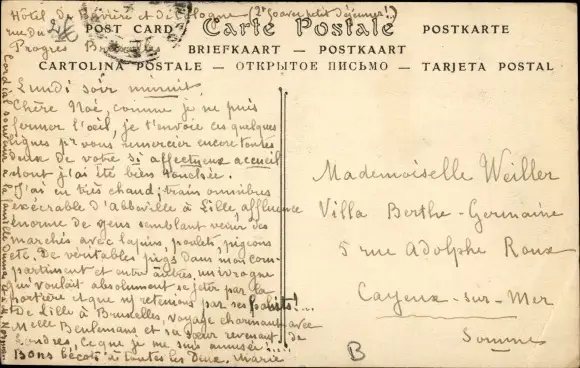 Hôtel de Bavière et de Cologne (2f 50 avec petit déjeuner!)
rue du
Progrès Bruxelles
Carte Postale
POST CARD
POSTKARTE
BRIEFKAART — POSTKAART
CARTOLINA POSTALE — ОТКРЫТОЕ ПИСЬМО — TARJETA POSTAL
Lundi soir minuit
Chère Noé, comme je ne puis
fermer l'œil, je t'envoie ces quelques
lignes pr vous remercier encore toutes
deux de votre si affectueux accueil
dont j'ai été bien touchée.
J'ai eu très chaud; train omnibus
exécrable d'Abbeville à Lille affluence
énorme de gens semblant venir des
marchés avec lapins, poulets, pigeons
etc. De véritables pigs dans mon com-
partiment et entre autres, un ivrogne
qui voulait absolument se jeter par la
portière et que ns retenions par ses
De Lille à Bruxelles, voyage charmant avec
Melle Beulemans et sa sœur revenant de
Londres. Ce que je me suis amusée!!!!
Bons bécots à toutes les deux. Marie
Cordial souvenir à la famille
Mademoiselle Weiller
Villa Berthe-Germaine
5 rue Adolphe Roux
Cayeux-sur-Mer
Somme
B